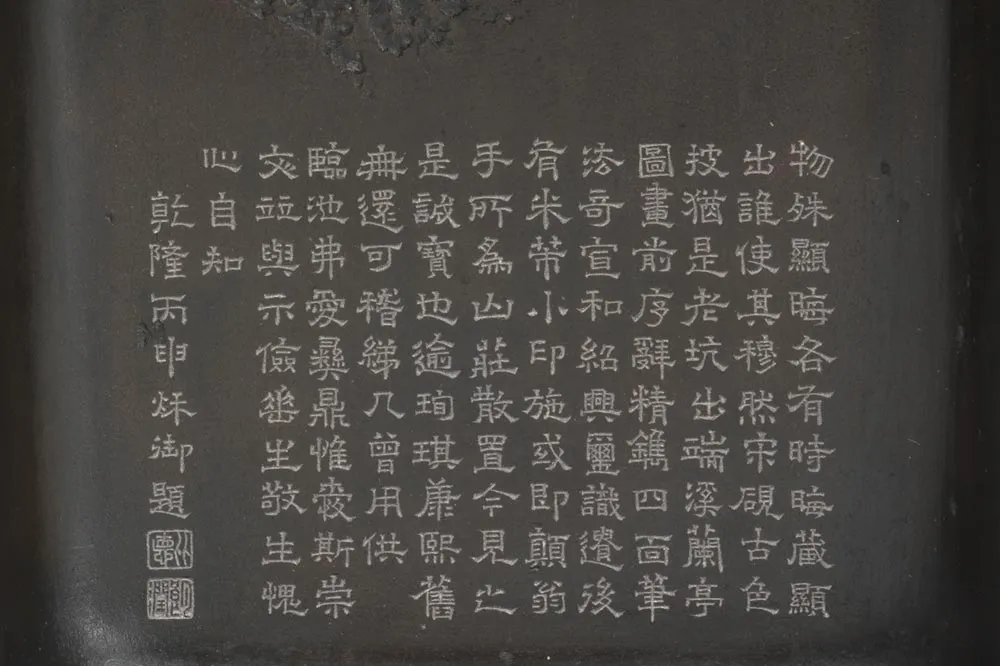 物殊顯晦各有時晦藏顯
出誰使其穆然宋硯古色
披猶是老坑出端溪蘭亭
圖畫前序辭精鐫四面筆
法奇宣和紹興璽識遺後
有米芾小印施或即顛翁
手所為山莊散置今見之
是誠寶也逾珣琪康熙舊
無還可稽綈几曾用供
臨池弗愛彝鼎惟爰斯崇
文竝與示儉生敬生愧
心自知
乾隆丙申秋御題
比德
朗潤